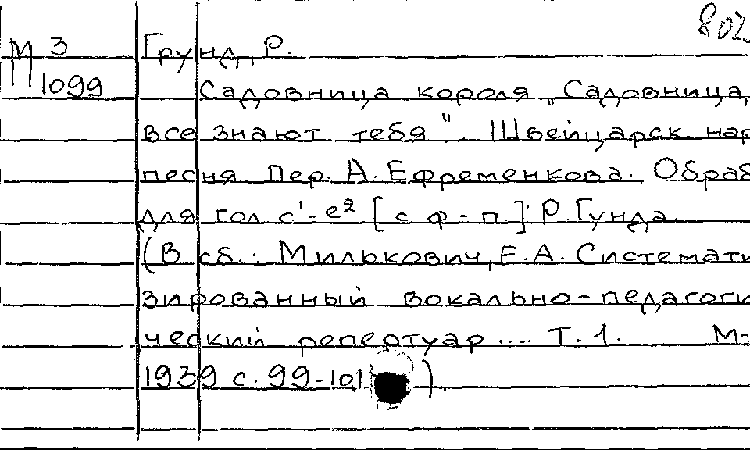 802
М 3 Грунд, Р.
1099 Садовница короля „Садовница,
все знают тебя". Швейцарск. нар
песня Пер. А. Ефременкова. Обраб
для гол с'-е² [с ф-п.] Р. Гунда.
(В сб.: Милькович, Е.А. Системати
зированный вокально-педагоги
ческий репертуар.... Т.1. М-
1939 с. 99-101 )